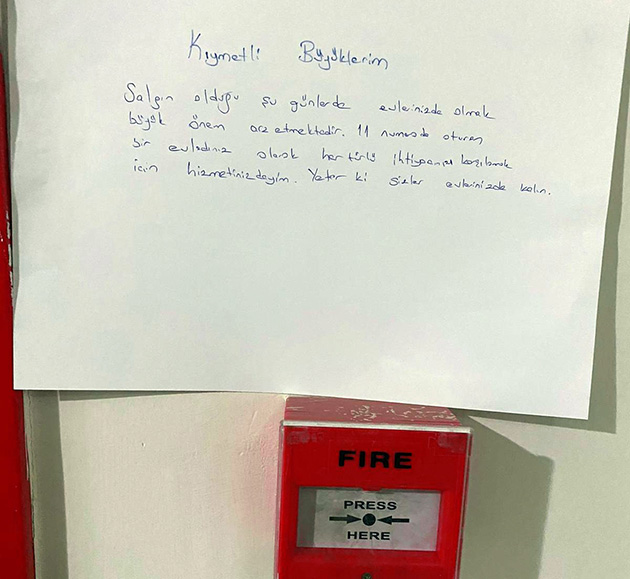 Kıymetli Büyüklerim
Salgın olduğu şu günlerde evlerinizde olmak
büyük önem arz etmektedir. 11 numarada oturan
bir evladınız olarak her türlü ihtiyacınızı karşılamak
için hizmetinizdeyim. Yeter ki sizler evlerinizde kalın.
FIRE
PRESS
HERE